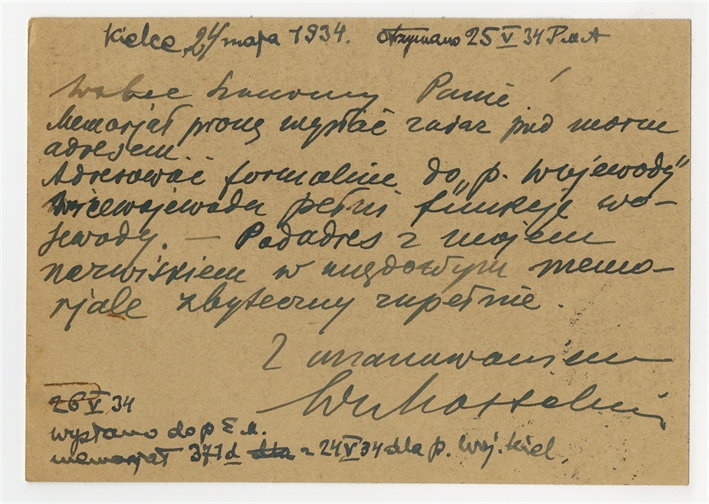 Kielce, 24/ maja 1934. otrzymano 25 V 34 P.M.A
Panie!
Memorjał proszę wysłać zaraz pod moim
adresem.
Adresować formalnie do „p. Wojewody"
Wicewojewoda pełni funkcje wo-
jewody. — Podadres z mojem
nazwiskiem w memo-
rjale zbyteczny zupełnie.
Z uszanowaniem
26 V 34
wysłano do p E.M.
memorjał 371d dla z 24 V 34 dla p. Woj. Kiel.